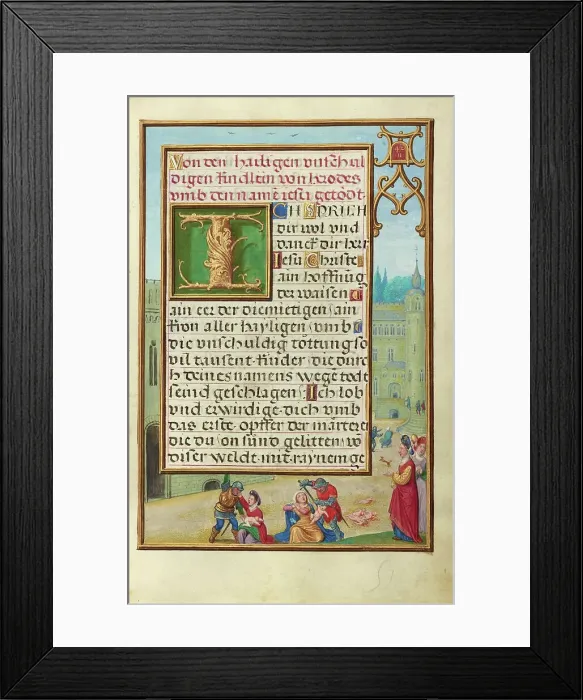 Von den hailigen vnschul
digen kindlein von hrodes
vmb den name iesu getödt
ICH SPRICH
dir wol vnd
danck dir herr
Jesu Christe
ain hoffnūg
der waisen
ain eer der diemietigen ain
kron aller hayligen vmb
die vnschuldig töttung so
vil tausent kinder die durc
h deines namens wege todt
seind geschlagen Ich lob
vnd erwirdige dich vmb
das erste opffer der märtere
die du on sünd gelitten vō
diser weldt mit raynem ge